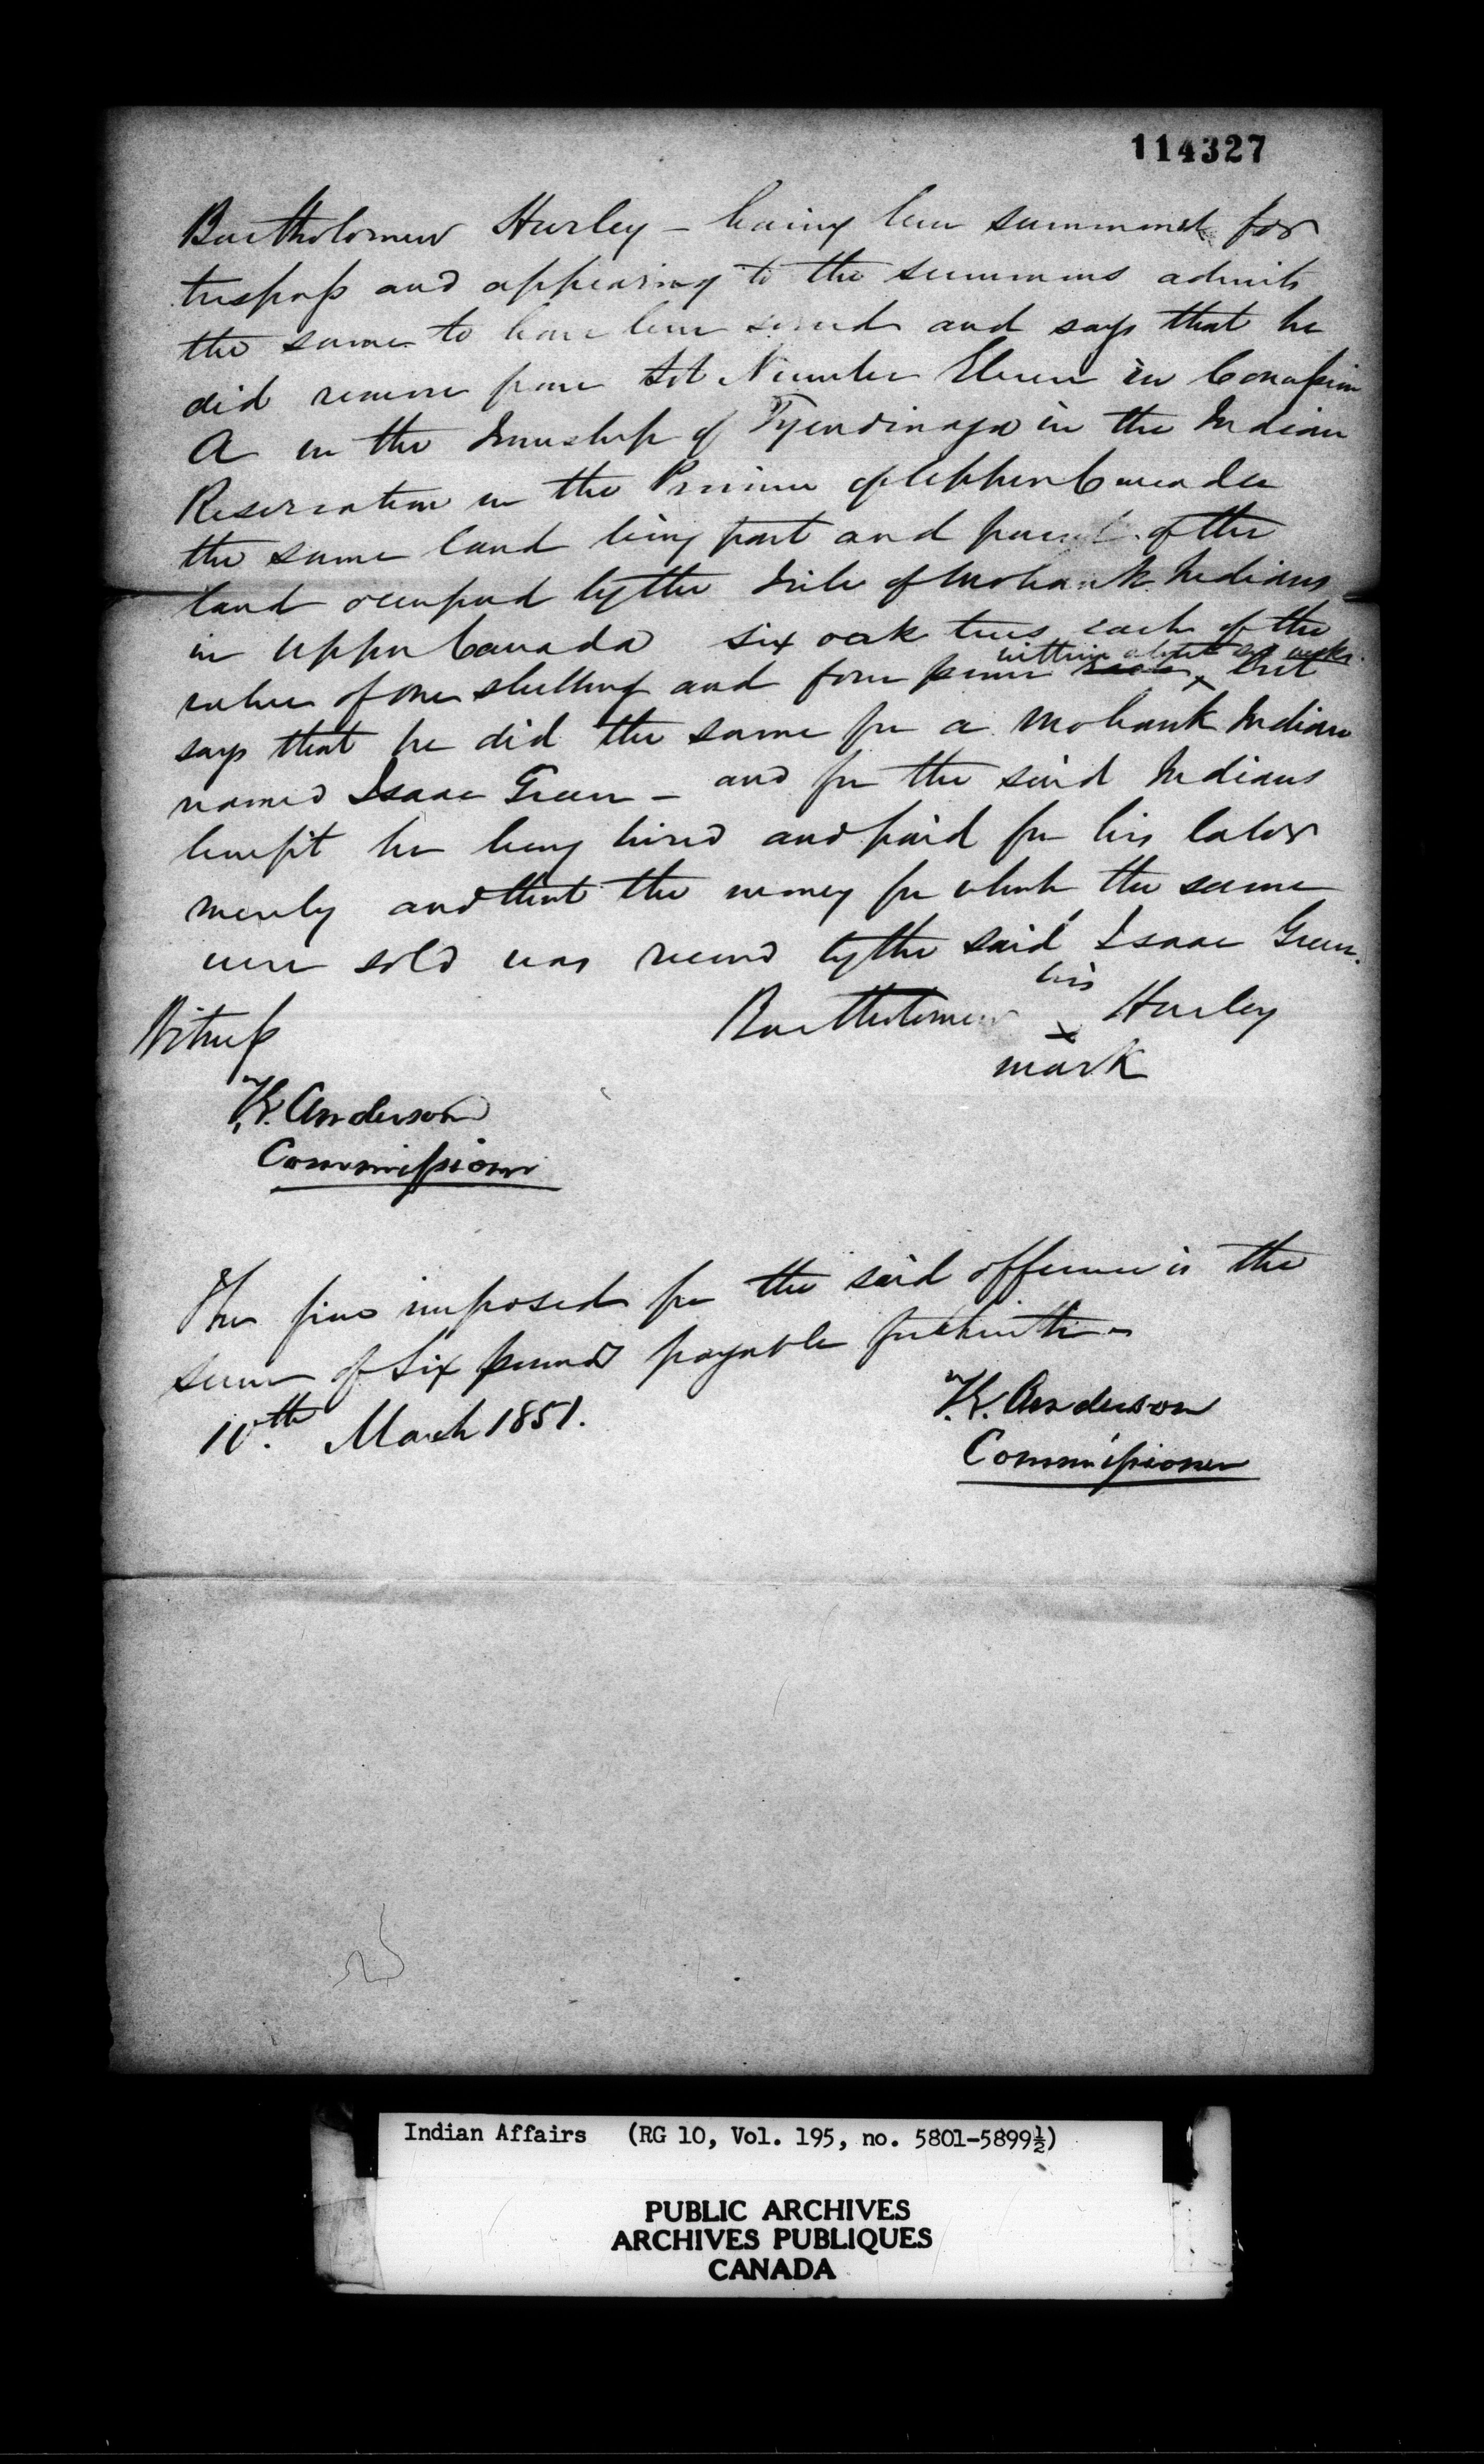 114327
Bartholomew Hurley - having been summoned for
trespass and appearing to the summons admits
the same to have been served and says that he
did remove from Lot Number Eleven in Concession
A in the Township of Tyendinaga in the Indian
Reservation in the Province of Upper Canada
the same land being part and parcel of the
land occupied by the Tribe of Mohawk Indians
in Upper Canada six oak trees each of the
within about six weeks
value of one shilling and four pence each, but
says that he did the same for a Mohawk Indian
named Isaac Green - and for the said Indians
benefit he being hired and paid for his labor
merely and that the money for which the same
were sold was received by the said Isaac Green.
his
Witness Bartholomew x Hurley
mark
Anderson
Commissioner
The fine imposed for the said offence is the
sum of Six pounds payable forthwith -
10.th March 1851.
Anderson
Commissioner
Indian Affairs (RG 10, Vol. 195, no. 5801-5899½)
PUBLIC ARCHIVES
ARCHIVES PUBLIQUES
CANADA